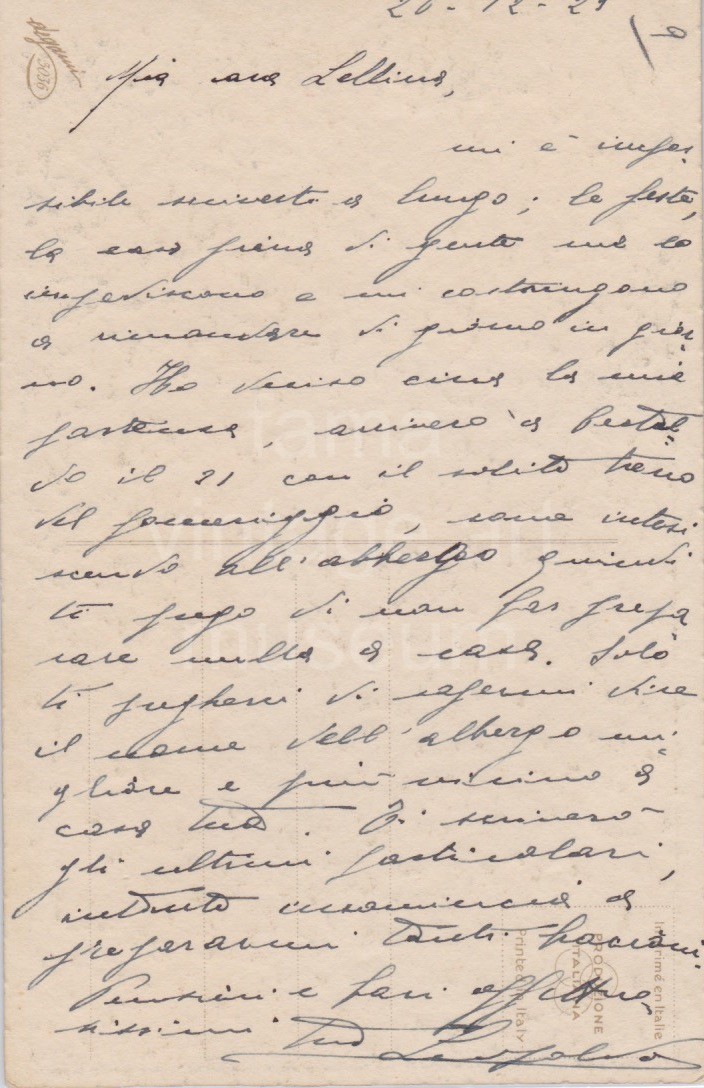 20-12-29
Degami
3036
Mia cara Lellina,
mi è impos-
sibile scriverti a lungo; le feste,
la casa piena di gente me lo
impediscono e mi costringono
a rimandare di giorno in gior-
no. Ho deciso circa la mia
partenza, arriverò a
do il 21 con il solito treno
del pomeriggio, come intesi
scendo all'albergo quindi
ti prego di non far prepa
rare nulla a casa. Solo
ti pregherei di sapermi dire
il nome dell'albergo mi-
gliore e più vicino a
casa tua. Ti scriverò
gli ultimi particolari,
intanto incomincia a
prepararmi tanti bacioni.
Pensieri e baci affettuo-
sissimi tuo Leopoldo
tama
vintage art
museum
Imprimé en Italie
PRODUZIONE
ITALIANA
Printed in Italy